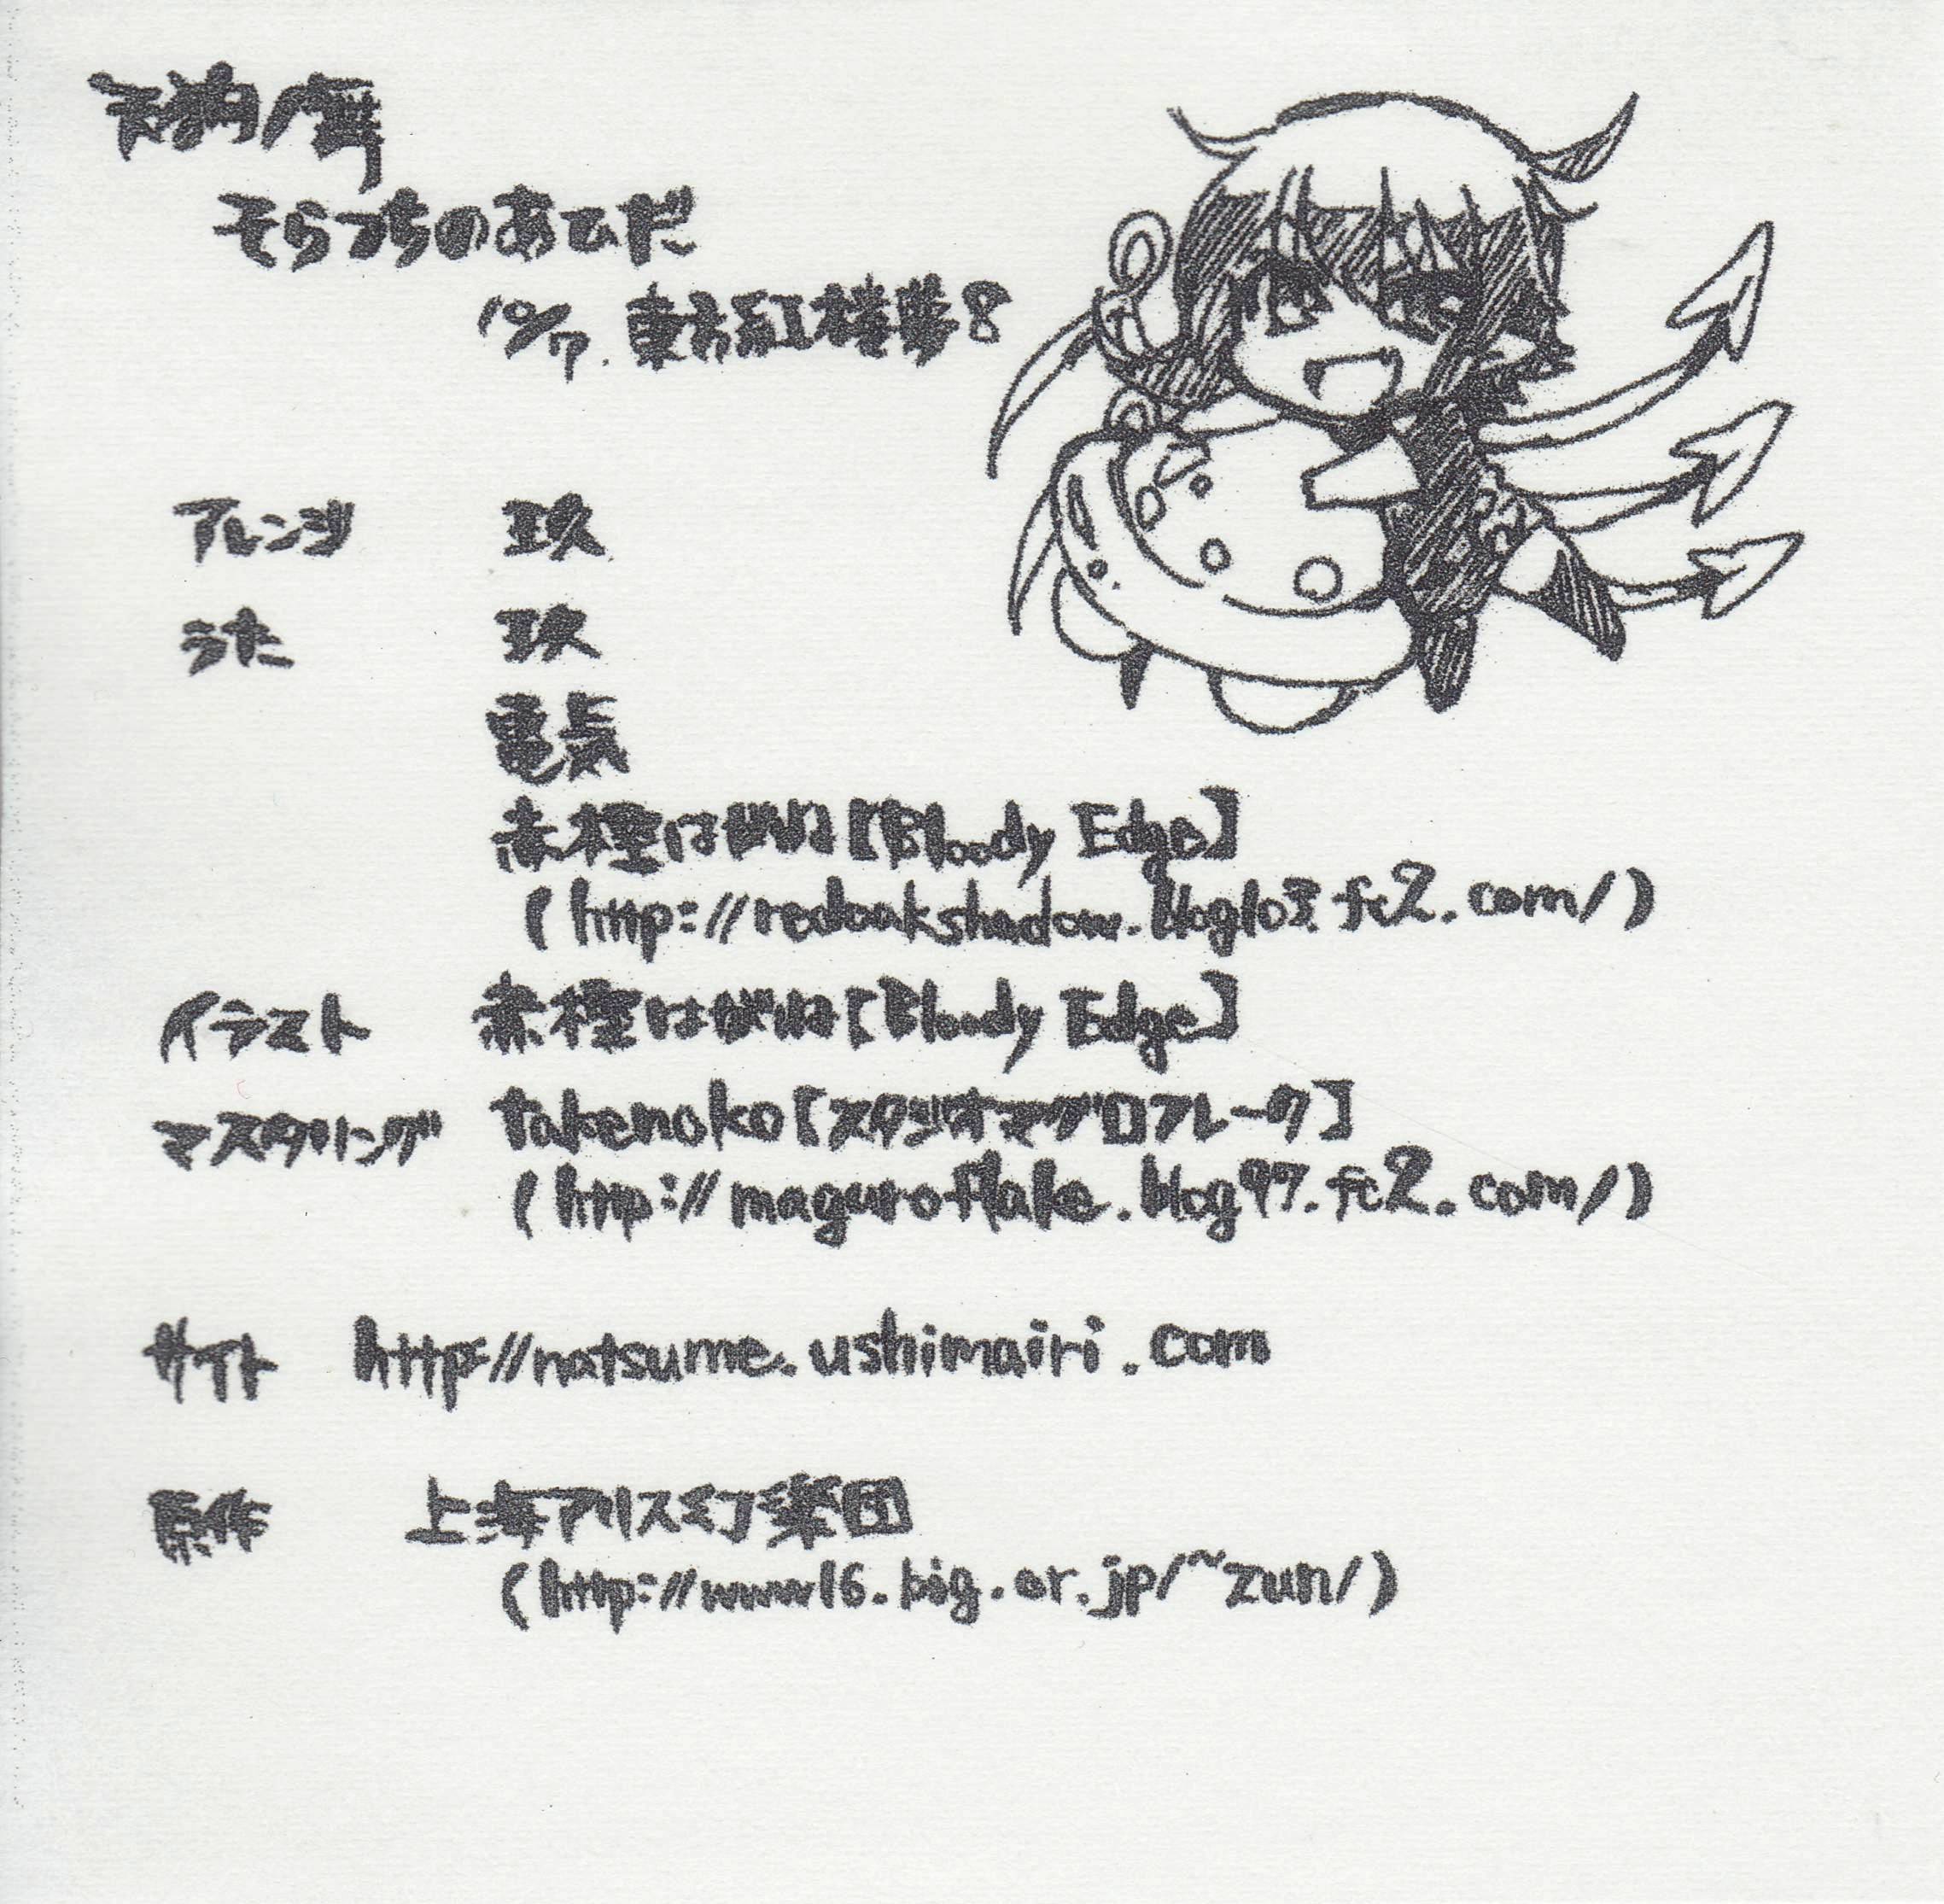 そらつちのあひだ
10/7. 東方紅楼夢8
アレンジ 玖
うた 玖
電気
赤樫はがね【Bloody Edge】
(http://redoakshadow.blog103.fc2.com/)
イラスト 赤樫はがね【Bloody Edge】
マスタリング takenoko【スタジオマグロフレーク】
(http://maguroflake.blog97.fc2.com/)
サイト http://natsume.ushimairi.com
原作 上海アリス幻楽団
(http://www16.big.or.jp/~zun/)